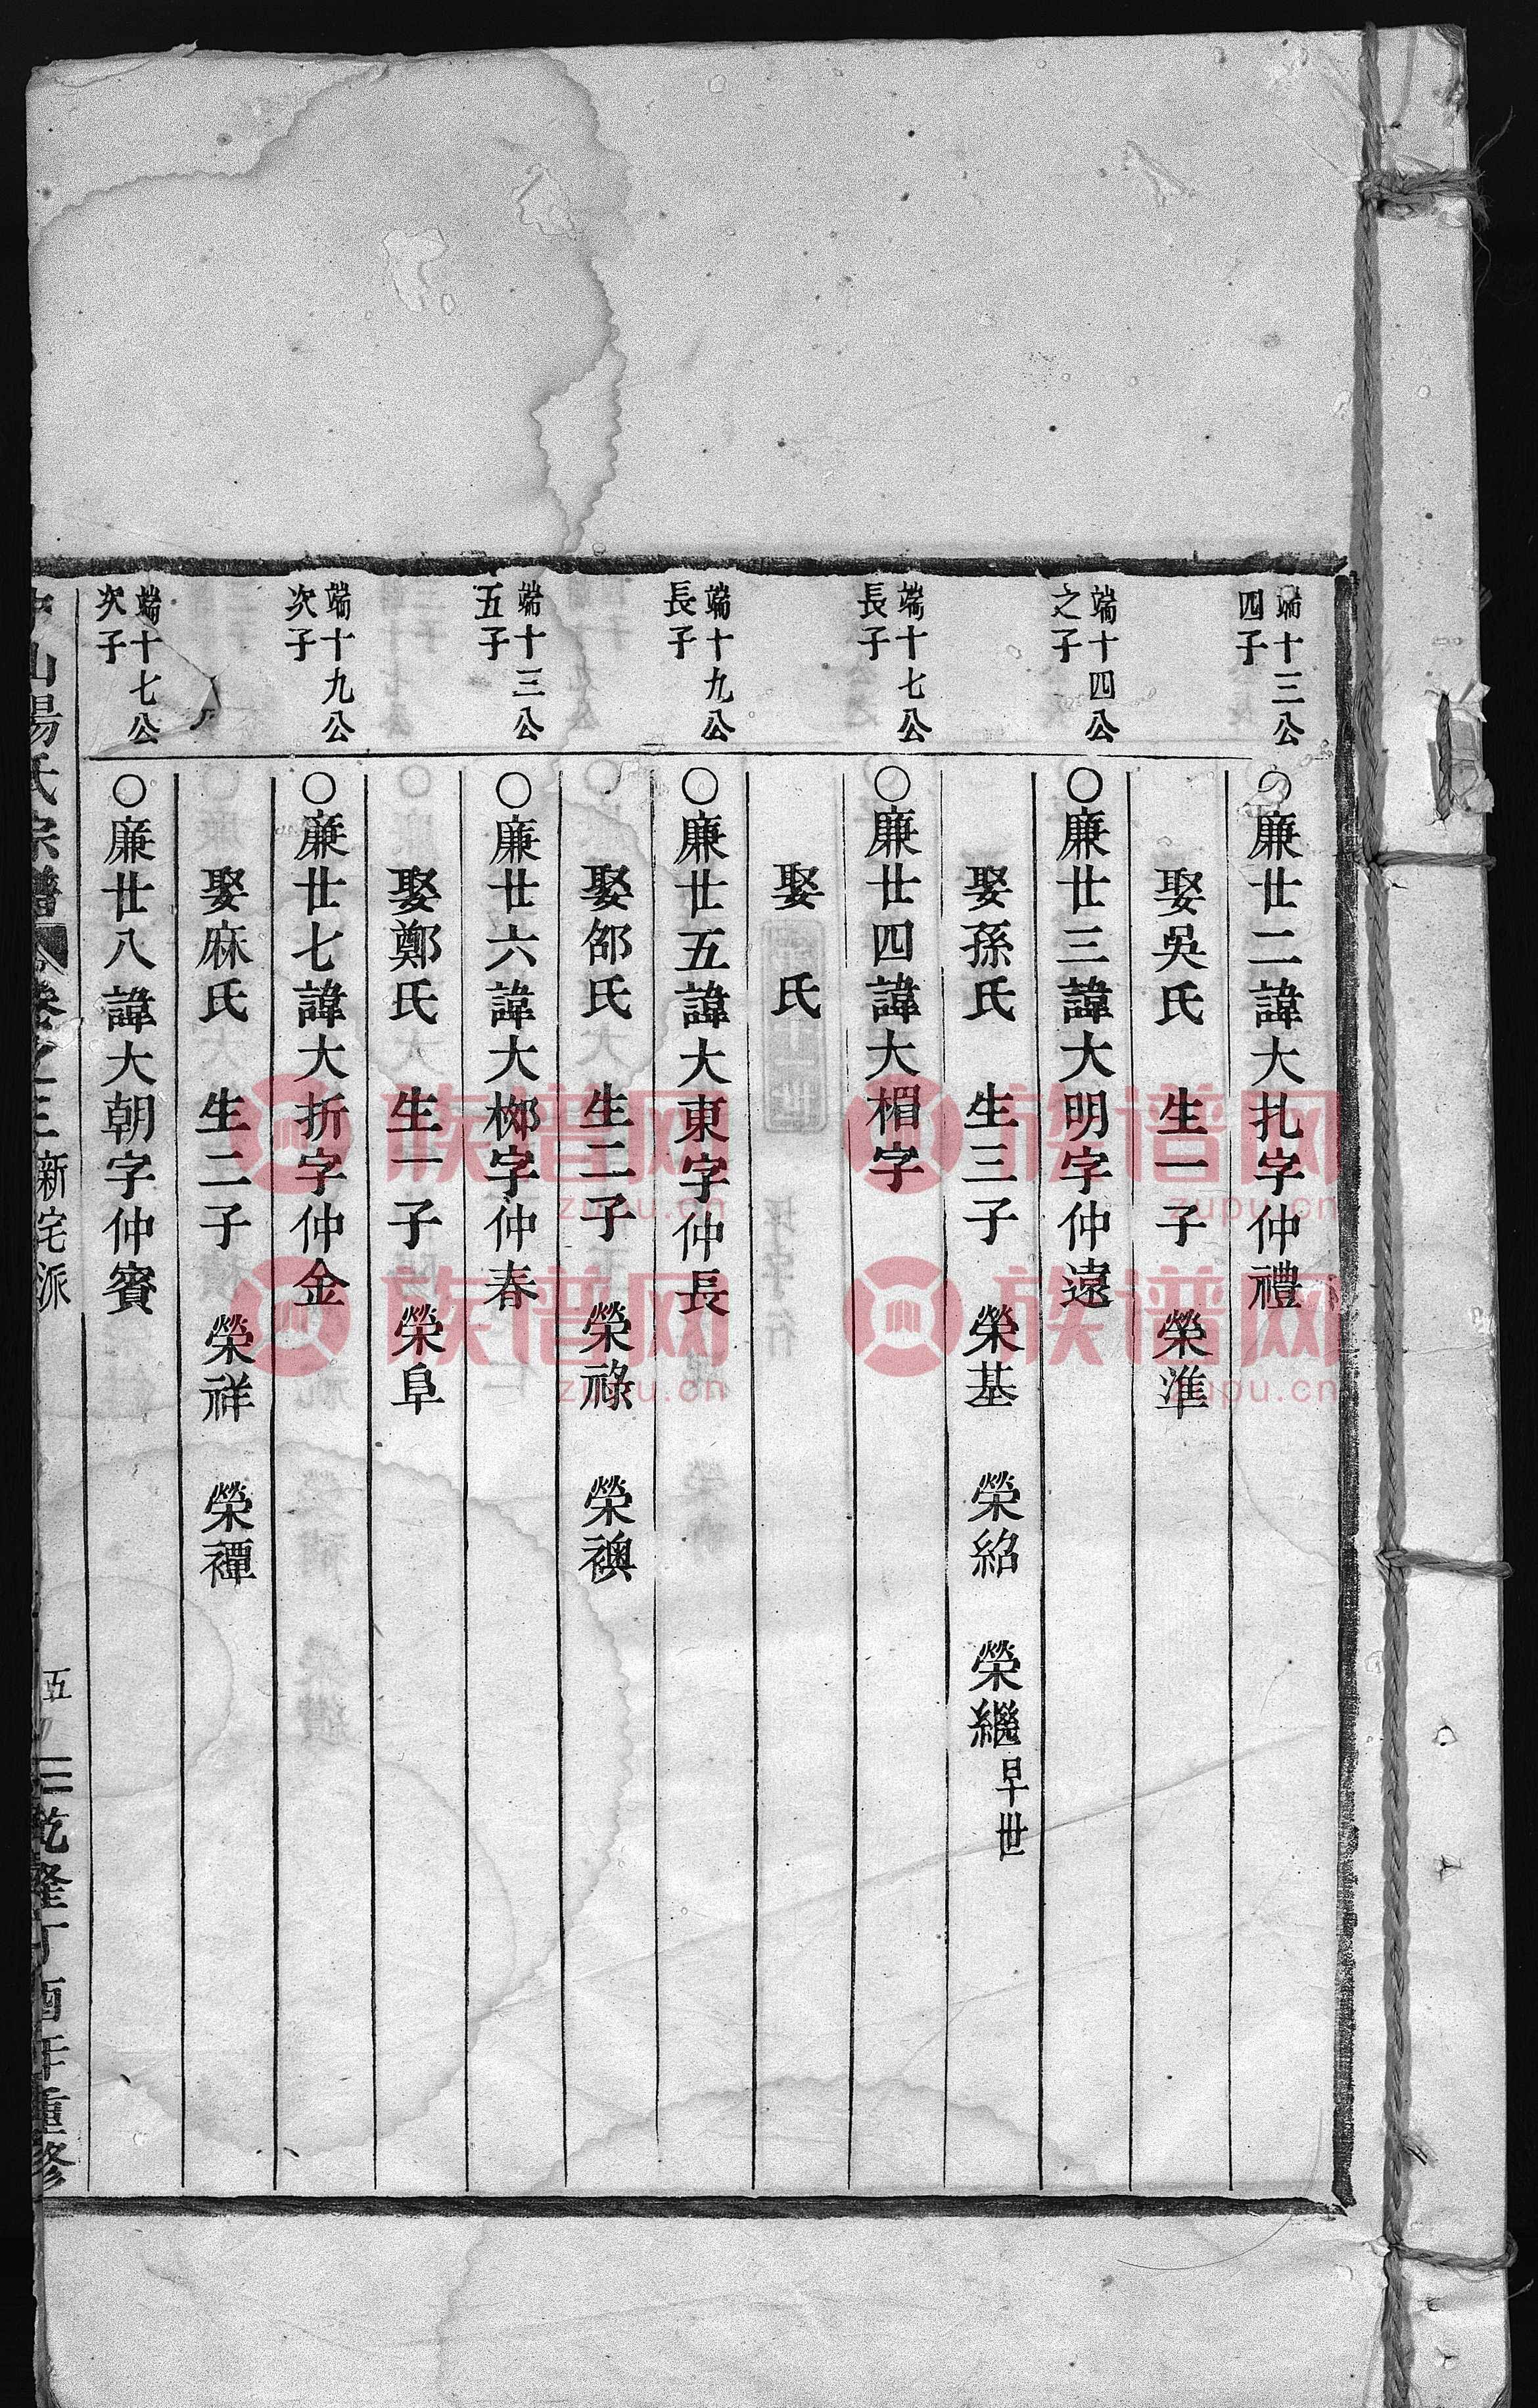 端十三公
四子
○廉廿二諱大扎字仲禮
娶吳氏 生一子 榮準
端十四公
之子
○廉廿三諱大明字仲遠
娶孫氏 生三子 榮基 榮紹 榮繼早世
端十七公
長子
○廉廿四諱大楣字
娶 氏
端十九公
長子
○廉廿五諱大東字仲長
娶邵氏 生二子 榮祿 榮襖
端十三公
五子
○廉廿六諱大梛字仲春
娶鄭氏 生一子 榮阜
端十九公
次子
○廉廿七諱大折字仲金
娶麻氏 生二子 榮祥 榮禫
端十七公
次子
○廉廿八諱大朝字仲賓
山湯氏宗譜 卷之三 新宅派 五 乾隆丁酉年重修
族谱网
zupu.cn
族谱网
zupu.cn
族谱网
zupu.cn
族谱网
zupu.cn